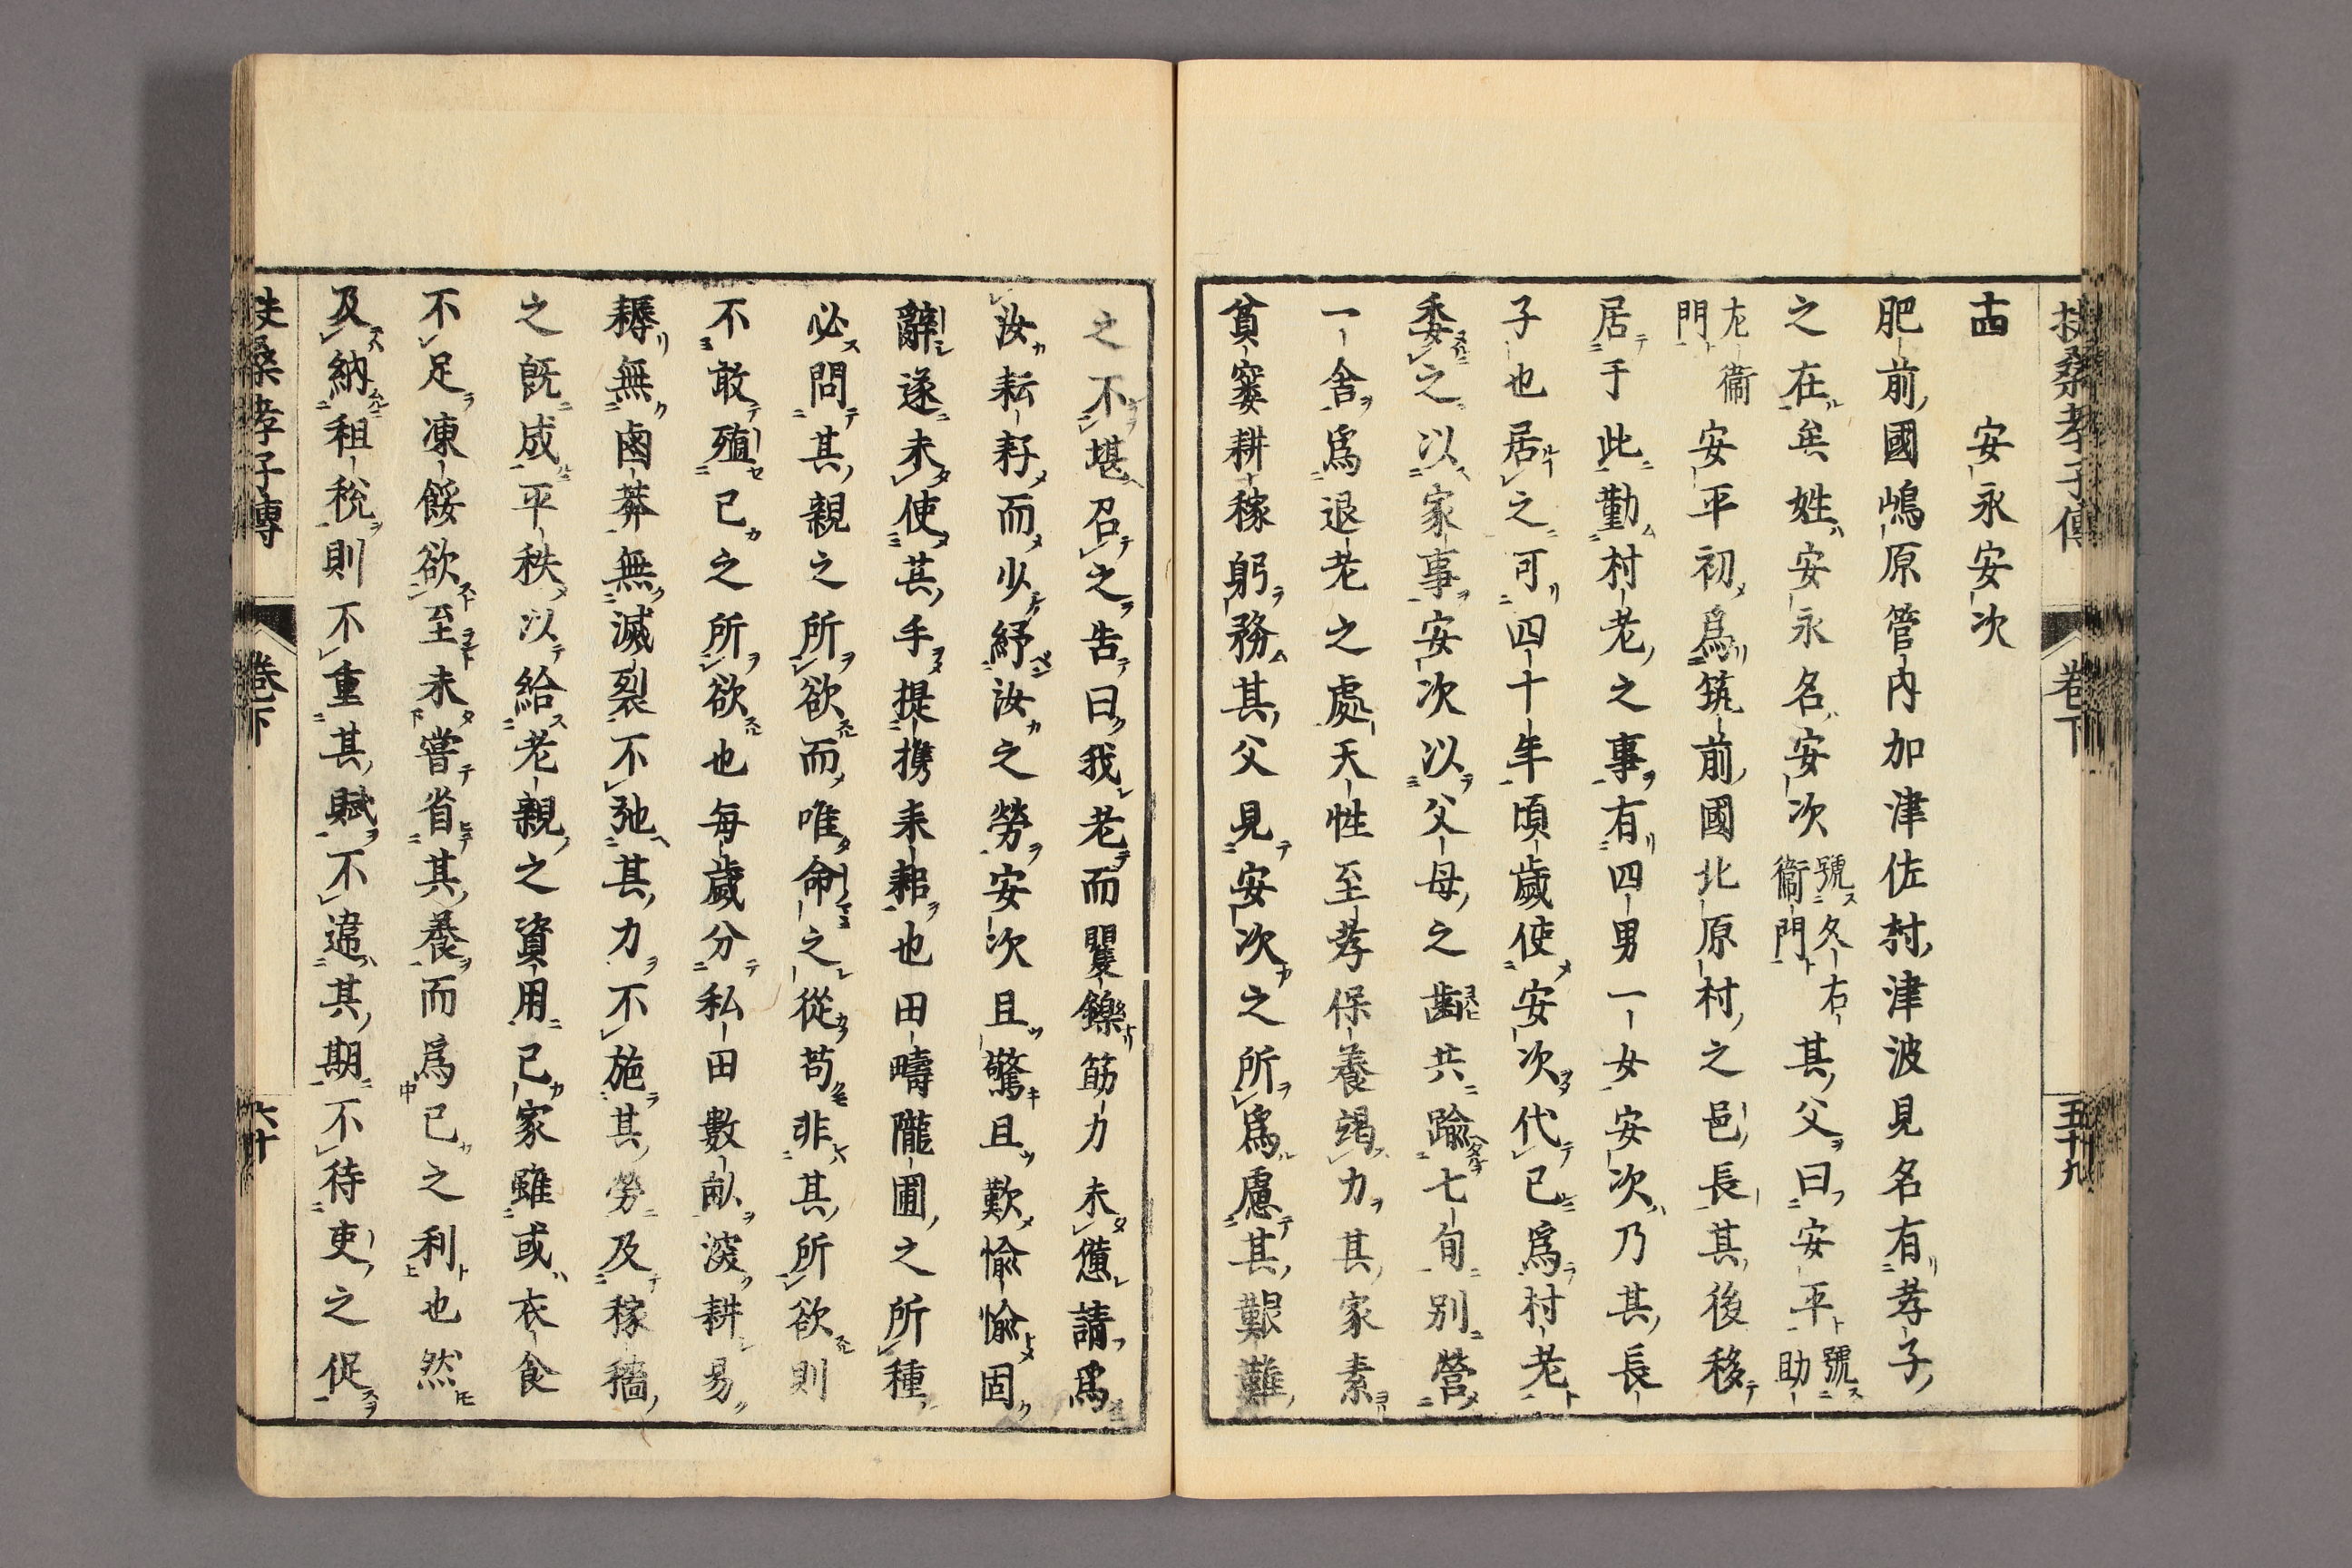 扶桑孝子傳 卷下 五十九
十四 安永安次
肥前國嶋原管内加津佐村津波見名有孝子
之在矣姓安永名安次號久右衞門其父曰安平號助
左衞門安平初爲筑前國北原村之邑長其後移
居于此勤村老之事有四男一女安次乃其長
子也居之可四十年頃歲使安次代已爲村老
委之以家事安次以父母之齒共踰七旬別營
一舍爲退老之處天性至孝保養竭力其家素
貧窶耕稼躬務其父見安次之所爲慮其艱難
之不堪召之告曰我老而矍鑠筋力未憊請爲
汝耘耔而少紓汝之勞安次且驚且歎愉愉固
辭遂未使其手提携耒耜也田疇隴圃之所種
必問其親之所欲而唯命之從苟非其所欲則
不敢殖已之所欲也每歲分私田數畝深耕易
耨無鹵莽無滅裂不弛其力不施其勞及稼穡
之旣成平秩以給老親之資用已家雖或衣食
不足凍餒欲至未嘗省其養而爲已之利也然
及納租稅則不重其賦不違其期不待吏之促
扶桑孝子傳 卷下 六十